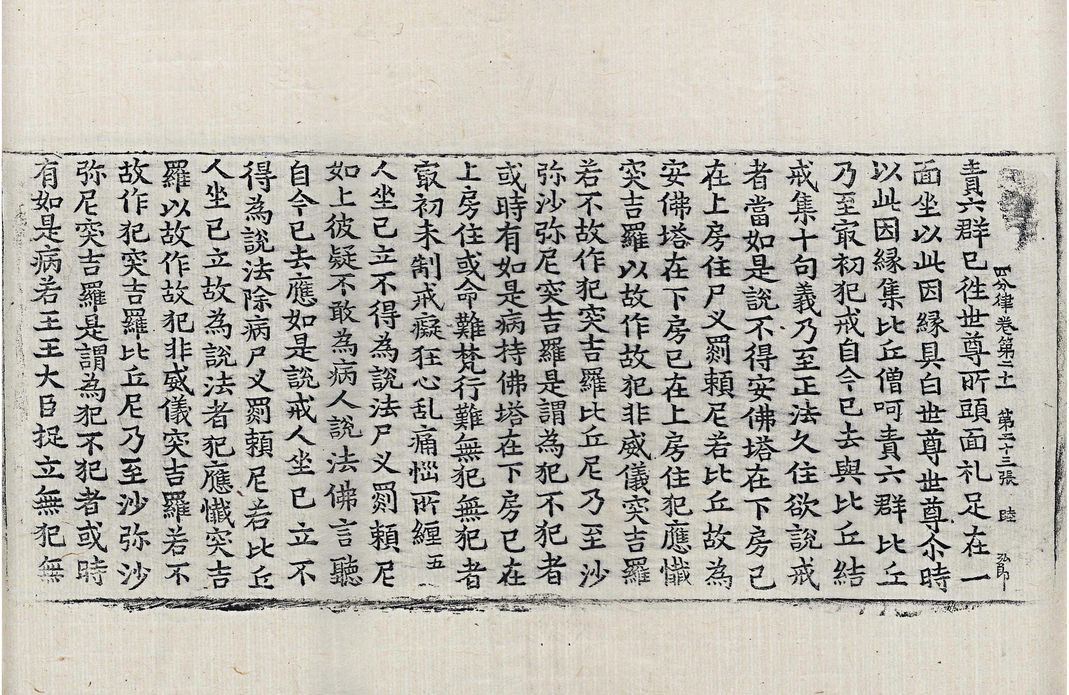 四分律卷第二十一 第二十三張 陸 弘郎
責六群已徃世尊所頭面礼足在一
面坐以此因縁具白世尊世尊尒時
以此因縁集比丘僧呵責六群比丘
乃至㝡初犯戒自今已去與比丘結
戒集十句義乃至正法久住欲說戒
者當如是說不得安佛塔在下房已
在上房住尸叉罽頼尼若比丘故為
安佛塔在下房已在上房住犯應懺
突吉羅以故作故犯非威儀突吉羅
若不故作犯突吉羅比丘尼乃至沙
弥沙弥尼突吉羅是謂為犯不犯者
或時有如是病持佛塔在下房已在
上房住或命難梵行難無犯無犯者
㝡初未制戒癡狂心乱痛惱所纏 五
人坐已立不得為說法尸叉罽頼尼
如上彼疑不敢為病人說法佛言聽
自今已去應如是說戒人坐已立不
得為說法除病尸叉罽頼尼若比丘
人坐已立故為說法者犯應懺突吉
羅以故作故犯非威儀突吉羅若不
故作犯突吉羅比丘尼乃至沙弥沙
弥尼突吉羅是謂為犯不犯者或時
有如是病若王王大臣捉立無犯無